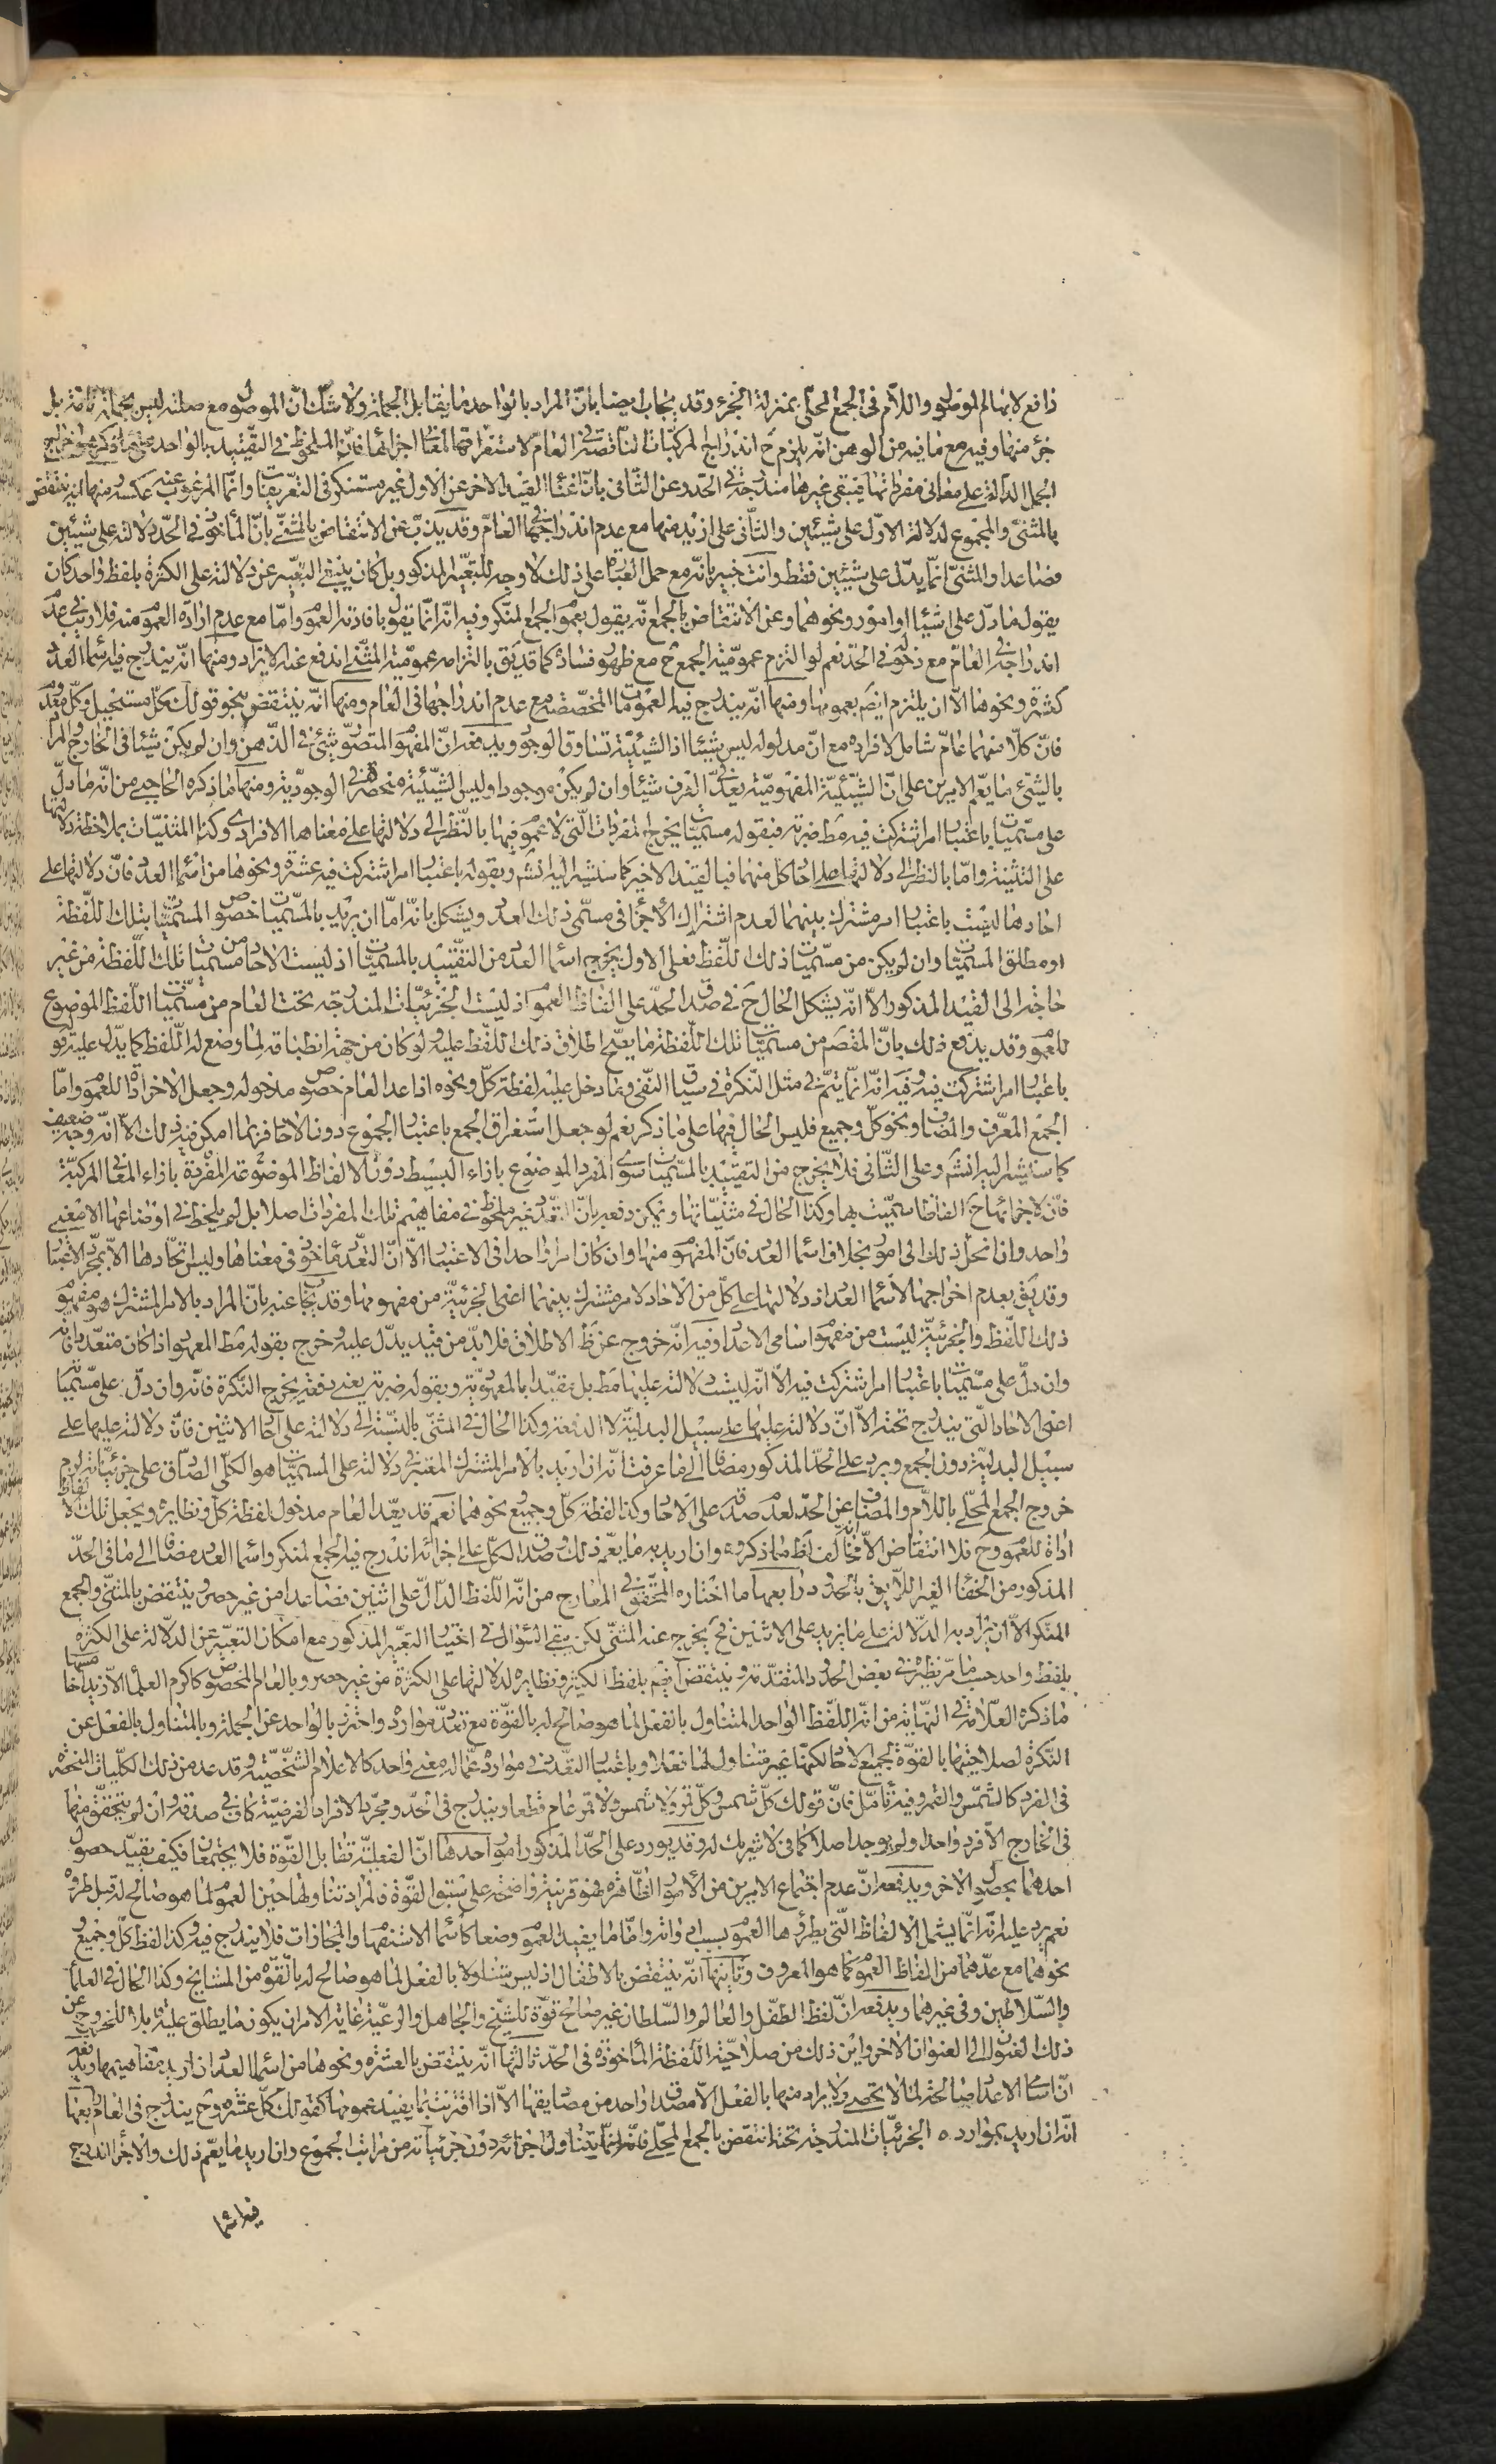 رافع لابهام الموصول واللام في الجمع المحلى بمنزلة الجزء وقد يجاب ايضا بان المراد بالواحد ما يقابل الجملة ولا شك ان الموصول مع صلته ليس بجملة تامة بل
جزء منها وفيه مع ما فيه من الوهن انه يلزم ح اندراج المركبات الناقصة في العام لاستغراقها لمعاني اجزائها فان الملحوظ في التقييد بالواحد على ما ذكر هو خراج
الجمل الدالة على معاني مفرداتها فيبقى غيرها مندرجة في الحد وعن الثاني بان اغناء القيد الاخر عن الاول غير مستنكر في التعريفات وانما المرغوب عنه عكسه ومنها انه ينتقض
بالمثنى والمجموع لدلالة الاول على شيئين والثاني على ازيد منها مع عدم اندراجهما في العام وقد يذب عن الانتقاض بالمثنى بان المأخوذ في الحد دلالته على شيئين
فصاعدا والمثنى انما يدل على شيئين فقط وانت خبير بانه مع حمل العبارة على ذلك لا وجه للتعبير المذكور بل كان ينبغي التعبير عن دلالته على الكثرة بلفظ واحد كان
يقول ما دل على اشياء او امور ونحوهما وعن الانتقاض بالجمع انه يقول بعموم الجمع المنكر وفيه انه انما يقول بافادته العموم واما مع عدم ارادة العموم منه فلا ريب في عدم
اندراجه في العام مع دخوله في الحد نعم لو التزم عمومية الجمع ح مع ظهور فساده كما قد يق بالتزامه عمومية المثنى اندفع عنه الايراد ومنها انه يندرج فيه اسماء العدد
كعشرة ونحوها الا ان يلتزم ايضا بعمومها ومنها انه يندرج فيه العمومات المخصصة مع عدم اندراجها في العام ومنها انه ينتقض بنحو قولك كل مستحيل وكل معدوم
فان كلا منهما عام شامل لافراده مع ان مدلوله ليس شيئا اذ الشيئية تساوق الوجود ويدفعه ان المفهوم المتصور شيء في الذهن وان لم يكن شيئا في الخارج والمراد
بالشيء ما يعم الامرين على ان الشيئية المفهومية يعد في العرف شيئا وان لم يكن موجودا وليس الشيئية منحصرة في الوجودية ومنها ما ذكره الحاجبي من انه ما دل
على مسميات باعتبار امر اشتركت فيه مط ضربة فبقوله مسميات يخرج المفردات التي لا عموم فيها بالنظر الى دلالتها على معناها الافرادي وكذا المثنيات بملاحظة دلالتها
على التثنية واما بالنظر الى دلالتها على احاد كل منهما فبالقيد الاخير كما سنشير اليه انشم وبقوله باعتبار امر اشتركت فيه عشرة ونحوها من اسماء العدد فان دلالتها على
احادها ليست باعتبار امر مشترك بينهما لعدم اشتراك الأجزاء في مسمى ذلك العدد ويشكل بانه اما ان يريد بالمسميات خصوص المسميات بتلك اللفظة
او مطلق المسميات وان لم يكن من مسميات ذلك اللفظ فعلى الاول يخرج اسماء العدد من التقييد بالمسميات اذ ليست الاحاد من مسميات تلك اللفظة من غير
حاجة الى القيد المذكور الا انه يشكل الحال ح في صدق الحد على الفاظ العموم اذ ليست الجزئيات المندرجة تحت العام من مسميات اللفظ الموضوع
للعموم وقد يدفع ذلك بان المقصود من مسميات تلك اللفظة ما يصح اطلاق ذلك اللفظ عليه ولو كان من جهة انطباقه لما وضع له اللفظ كما يدل عليه قوله
باعتبار امر اشتركت فيه وفيه انه انما يتم في مثل النكرة في سياق النفي وما دخل عليه لفظة كل ونحوه اذا عد العام خصوص مدخوله وجعل الاخر اداة للعموم واما
الجمع المعرف والمضاف ونحو كل وجميع فليس الحال فيها على ما ذكر نعم لو جعل استغراق الجمع باعتبار الجموع دون الاحاد فربما امكن فيه ذلك الا انه وجه ضعيف
كما سنشير اليه انشم وعلى الثاني فلا يخرج من التقييد بالمسميات سوى المفرد الموضوع بازاء البسيط دون الالفاظ الموضوعة المفردة بازاء المعاني المركبة
فان لاجزائها ح الفاظا سميت بها وكذا الحال في مثنياتها ويمكن دفعه بان التعدد غير ملحوظ في مفاهيم تلك المفردات اصلا بل لم يلحظ في اوضاعها الا معنى
واحد وان انحل ذلك الى امور بخلاف اسماء العدد فان المفهوم منها وان كان امرا واحدا في الاعتبار الا ان التعدد مأخوذ في معناها وليس اتحادها الا بمجرد الاعتبار
وقد يق بعدم اخراجها لأسماء العدد اذ دلالتها على كل من الاحاد لامر مشترك بينهما اعني الجزئية من مفهومها وقد يجاب عنه بان المراد بالامر المشترك هو مفهوم
ذلك اللفظ والجزئية ليست من مفهوم اسامي الاعداد وفيه انه خروج عن ظ الاطلاق فلا بد من قيد يدل عليه وخرج بقوله مط المعهود اذا كان متعددا فانه
وان دل على مسميات باعتبار امر اشتركت فيه الا انه ليست دلالته عليها مط بل مقيدا بالمعهودية وبقوله ضربة يعني دفعة يخرج النكرة فانه وان دل على مسمياته
اعني الاحاد التي يندرج تحته الا ان دلالته عليها على سبيل البدلية لا الدفعة وكذا الحال في المثنى بالنسبة الى دلالته على احاد الاثنين فان دلالته عليها على
سبيل البدلية دون الجمع ويرد على الحد المذكور مضافا الى ما عرفت انه ان اريد بالامر المشترك المعتبر في دلالته على المسميات هو الكلي الصادق على جزئياته لزم
خروج الجمع المحلى باللام والمضاف عن الحد لعدم صدقه على الاحاد وكذا لفظة كل وجميع نحوهما نعم قد يعد العام مدخول لفظة كل ونظايره ويجعل تلك الالفاظ
اداة للعموم وح فلا انتقاض الا انه مخالف لظ ما ذكروه وان اريد به ما يعم ذلك وصدق الكل على اجزائه اندرج فيه الجمع المنكر واسماء العدد مضافا الى ما في الحد
المذكور من الخفاء الغير اللايق بالحدود رابعها ما اختاره المحقق في المعارج من انه اللفظ الدال على اثنين فصاعدا من غير حصر وينتقض بالمثنى والجمع
المنكر الا ان يراد به الدلالة على ما يزيد على الاثنين فح يخرج عنه المثنى لكن يبقى السؤال في اختيار التعبير المذكور مع امكان التعبير عن الدلالة على الكثرة
بلفظ واحد حسبما مر نظيره في بعض الحدود المتقدمة وينتقض ايضم بلفظ الكثير ونظايره لدلالتها على الكثرة من غير حصر وبالعام المخصوص كاكرم العلماء الا زيدا خامسها
ما ذكره العلامة في النهاية من انه اللفظ الواحد المتناول بالفعل لما هو صالح له بالقوة مع تعدد موارده واحترز بالواحد عن الجملة وبالمتناول بالفعل عن
النكرة لصلاحيتها بالقوة لجميع الاحاد لكنها غير متناول لها فعلا وباعتبار التعدد في موارده عما له معنى واحد كالاعلام الشخصية وقد عد من ذلك الكليات المنحصرة
في الفرد كالشمس والقمر وفيه تأمل فان قولك كل شمس وكل قمر ولا شمس ولا قمر عام قطعا ويندرج في الحد ومجرد الافراد الفرضية كاف في صدقه وان لم يتحقق منها
في الخارج الا فرد واحد او لم يوجد اصلا كما في لا شريك له وقد يورد على الحد المذكور امور احدها ان الفعلية تقابل القوة فلا يجتمعان فكيف يقيد حصول
احدهما بحصول الاخر ويدفعه ان عدم اجتماع الامرين من الأمور الظاهرة فهو قرينة واضحة على سبق القوة فالمراد تناولها حين العموم لما هو صالح له قبل طروه
نعم يرد عليه انه انما يشمل الالفاظ التي يطرؤها العموم بسبب ادواته واما ما يفيد العموم وضعا كاسماء الاستفهام والمجازات فلا يندرج فيه وكذا لفظ كل وجميع
نحوهما مع عدهما من الفاظ العموم كما هو المعروف وثانيها انه ينتقض بالاطفال اذ ليس متناولا بالفعل لما هو صالح له بالقوة من المشايخ وكذا الحال في العلماء
والسلاطين وفي غيرهما ويدفعه ان لفظ الطفل والعالم والسلطان غير صالح قوة للشيخ والجاهل والرعية غاية الامر ان يكون ما يطلق عليه قابلا للخروج عن
ذلك العنوان الى العنوان الاخر واين ذلك من صلاحية اللفظة المأخوذة في الحد ثالثها انه ينتقض بالعشرة ونحوها من اسماء العدد ان اريد مفاهيمها ويدفعه
ان اسامي الاعداد صالحة لما لا تحصى ولا يراد منها بالفعل الا مصداق واحد من مصاديقها الا اذا اقترنت بما يفيد عمومها كقولك كل عشرة وح يندرج في العام رابعها
انه ان اريد بموارده الجزئيات المندرجة تحته انتقض بالجمع المحلى فانه انما يتناول اجزائه دون جزئياته من مراتب الجموع وان اريد ما يعم ذلك والاجزاء اندرج
فيه اسماء